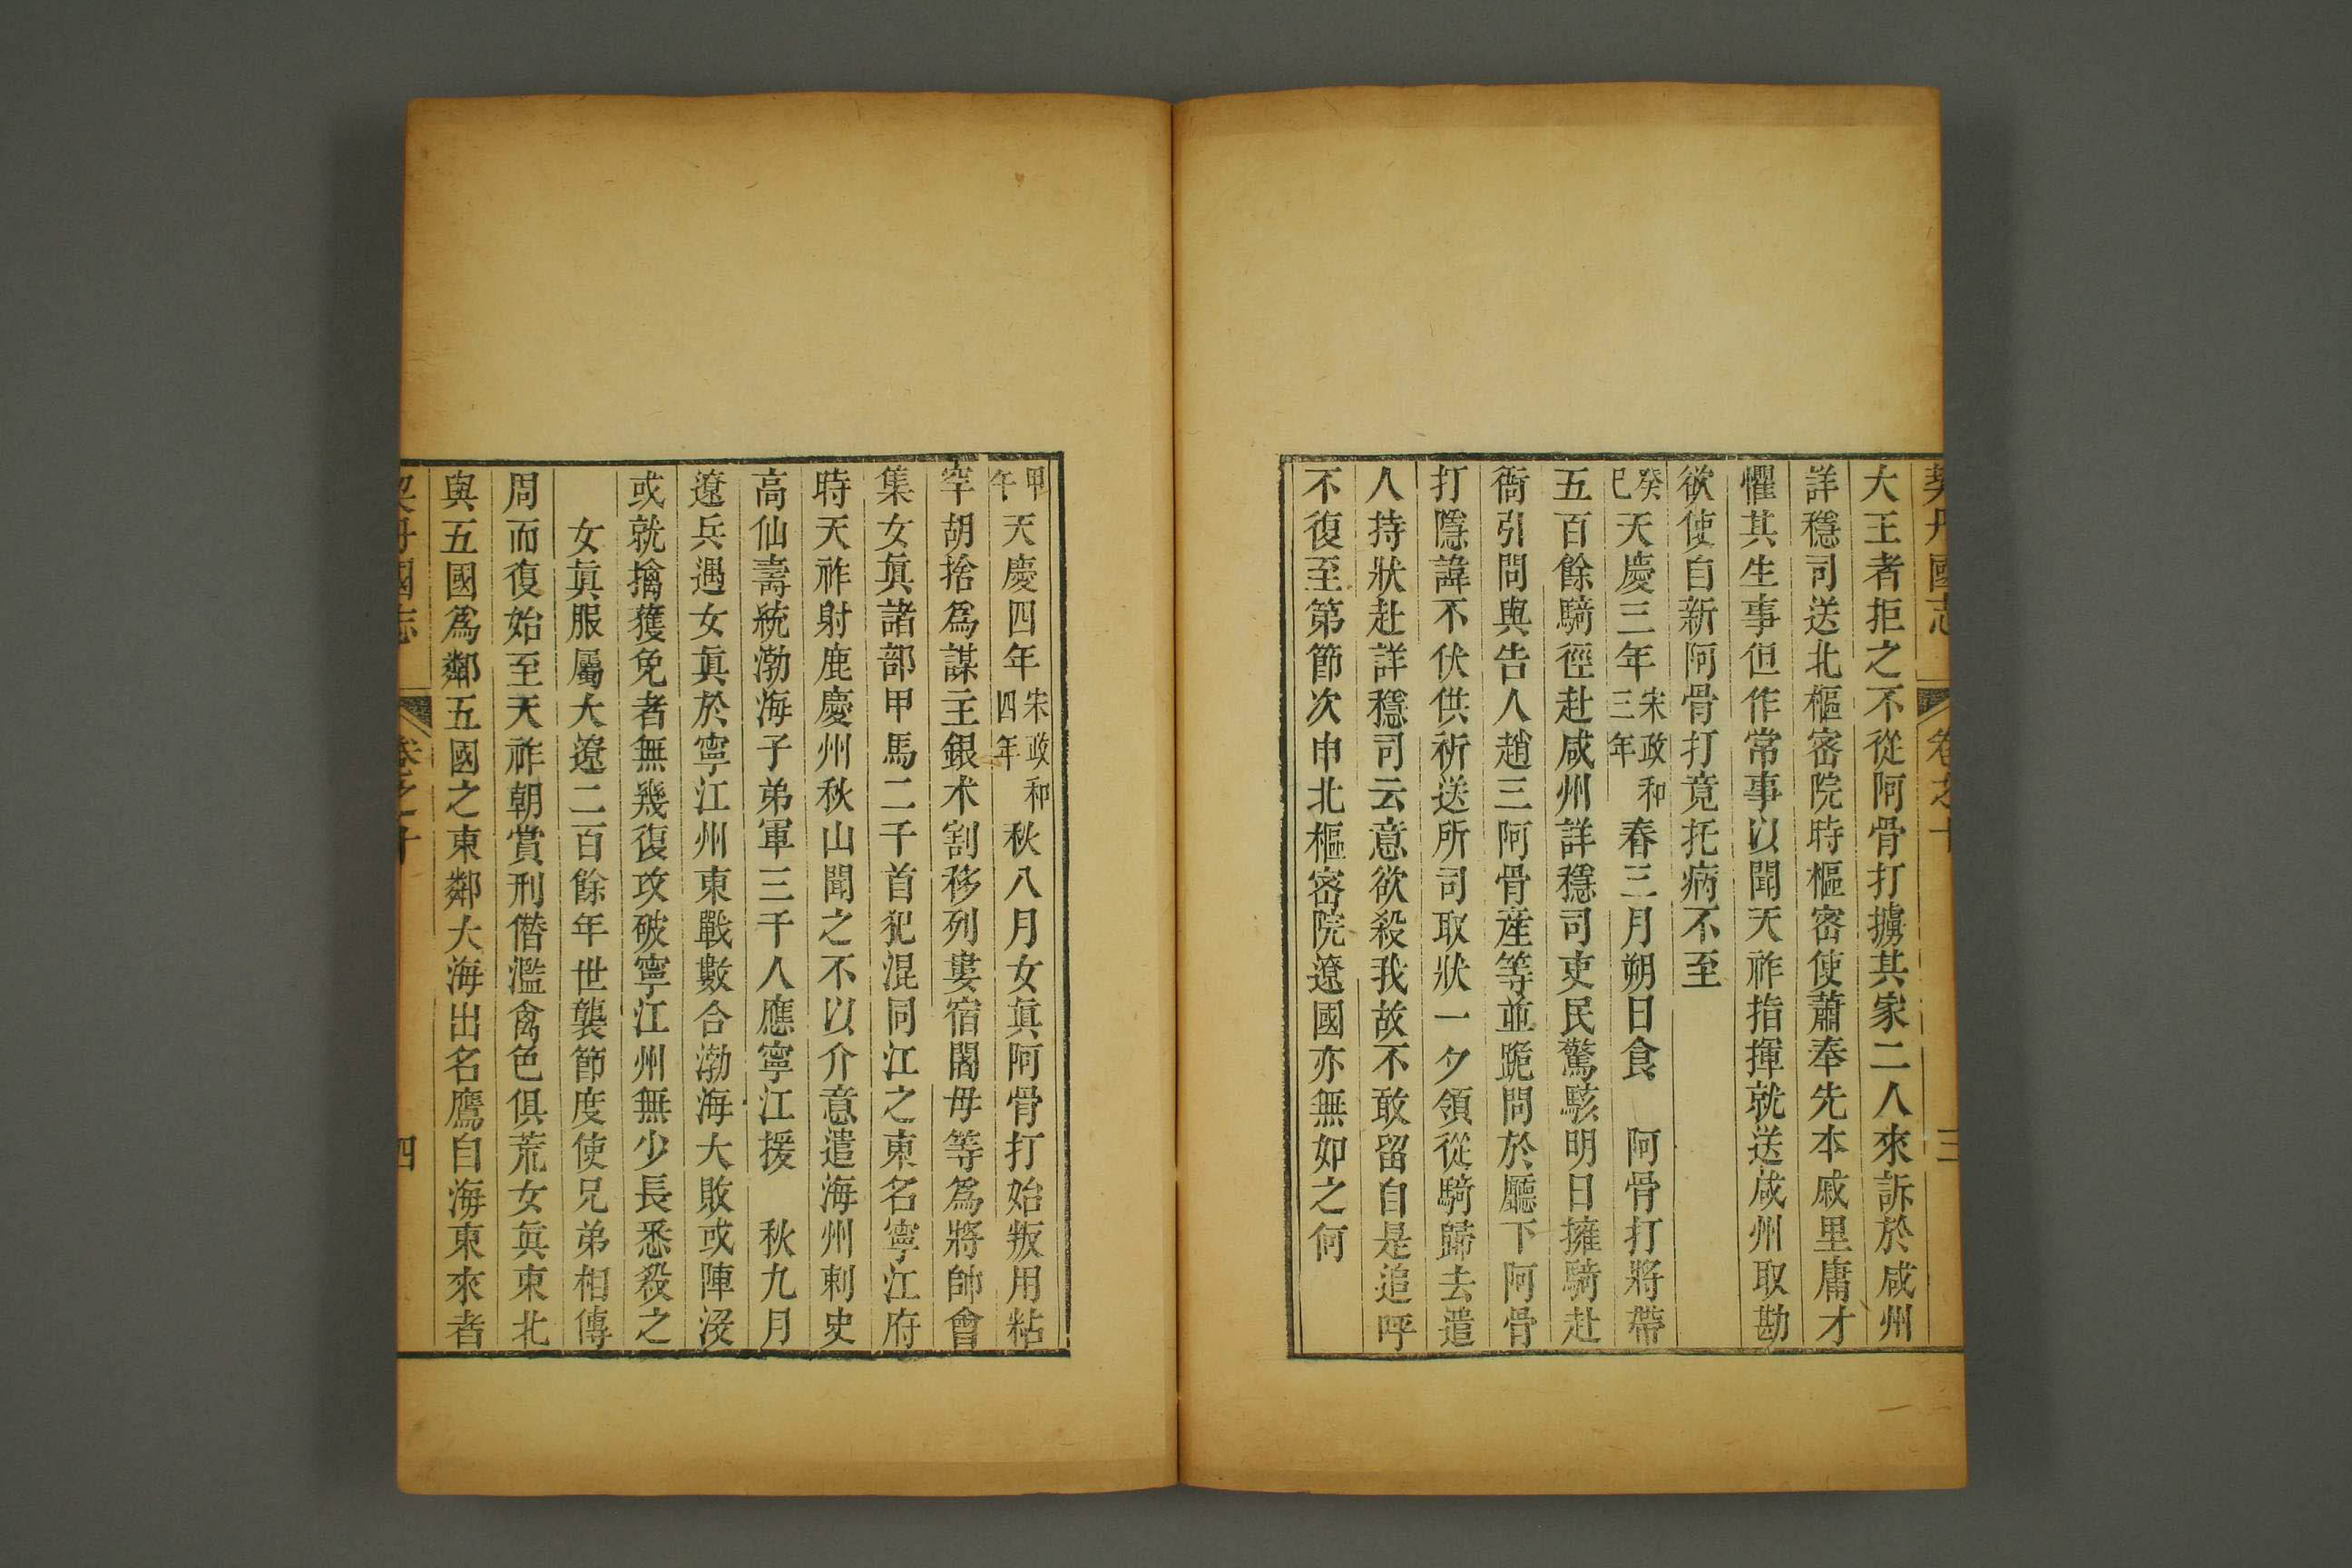 契丹國志 卷之十 三
大王者拒之不從阿骨打擄其家二人來訴於咸州
詳穩司送北樞密院時樞密使蕭奉先本戚里庸才
懼其生事但作常事以聞天祚指揮就送咸州取勘
欲使自新阿骨打竟托病不至
癸巳天慶三年宋政和三年春三月朔日食　阿骨打將帶
五百餘騎徑赴咸州詳穩司吏民驚駭明日擁騎赴
衙引問與告人趙三阿骨產等並跪問於廳下阿骨
打隱諱不伏供祈送所司取狀一夕領從騎歸去遣
人持狀赴詳穩司云意欲殺我故不敢留自是追呼
不復至第節次申北樞密院遼國亦無如之何
甲午天慶四年宋政和四年秋八月女眞阿骨打始叛用粘
罕胡捨爲謀主銀术割移列婁宿闍毋等爲將帥會
集女眞諸部甲馬二千首犯混同江之東名寧江府
時天祚射鹿慶州秋山聞之不以介意遣海州刺史
高仙壽統渤海子弟軍三千人應寧江援　秋九月
遼兵遇女眞於寧江州東戰數合渤海大敗或陣沒
或就擒獲免者無幾復攻破寧江州無少長悉殺之
女眞服屬大遼二百餘年世襲節度使兄弟相傳
周而復始至天祚朝賞刑僭濫禽色俱荒女眞東北
與五國爲鄰五國之東鄰大海出名鷹自海東來者
契丹國志 卷之十 四